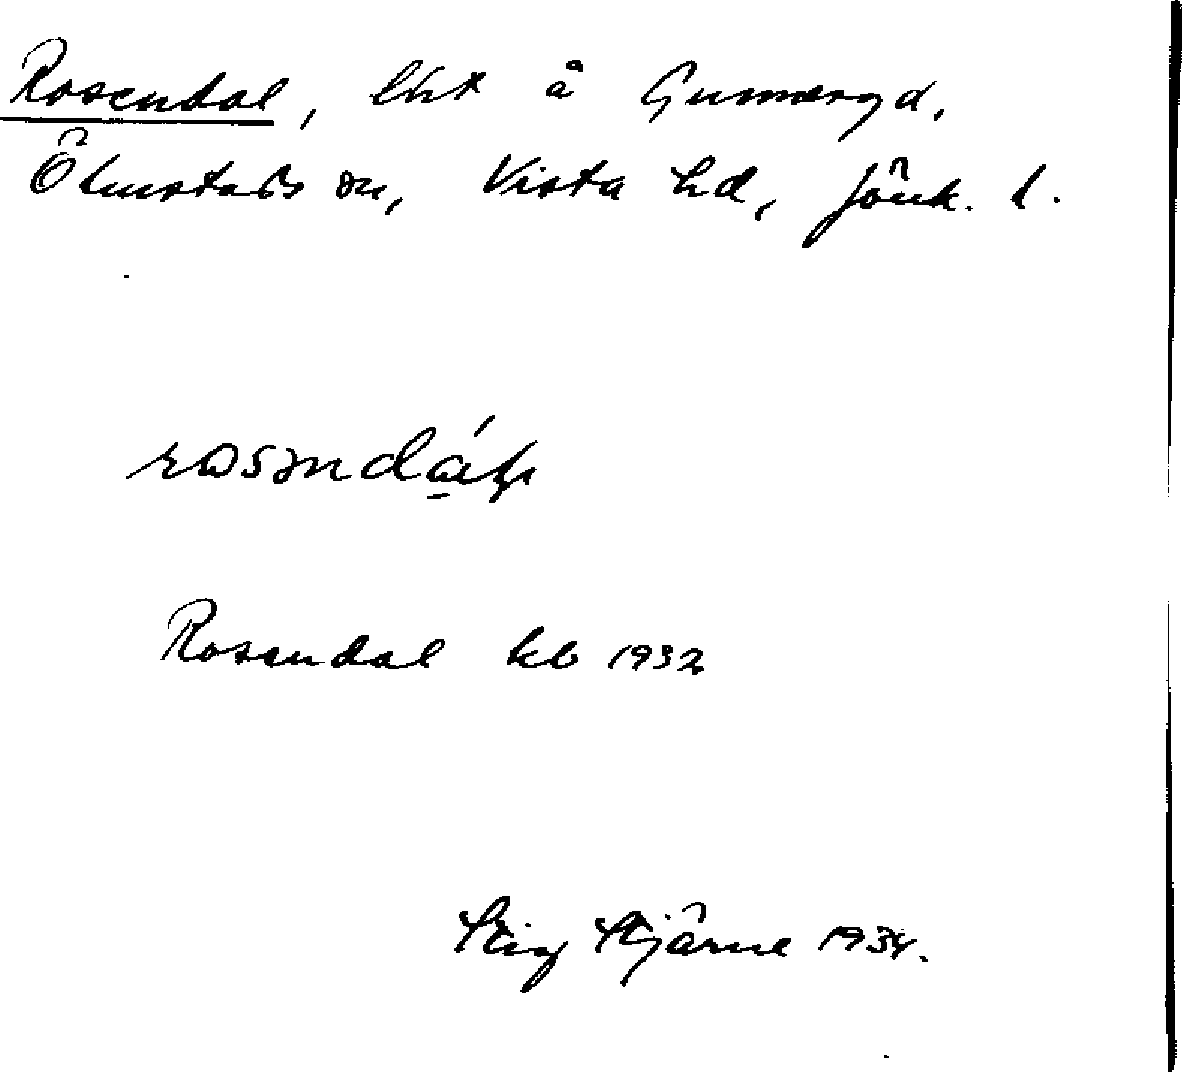 Rosendal, lht å Gunnaryd,
Ölmstads sn, Vista hd, Jönk. l.
Rosendal kb 1932
Stig Stjärne 1934.